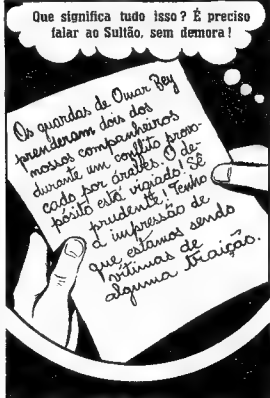 Que significa tudo isso? É preciso
falar ao Sultão, sem demora!
Os guardas de Omar Bey
prenderam dois dos
nossos companheiros
durante um conflito provo-
cado por árabes. O de-
pósito está vigiado! Sê
prudente! Tenho
a impressão de
que estamos sendo
vítimas de
alguma traição.